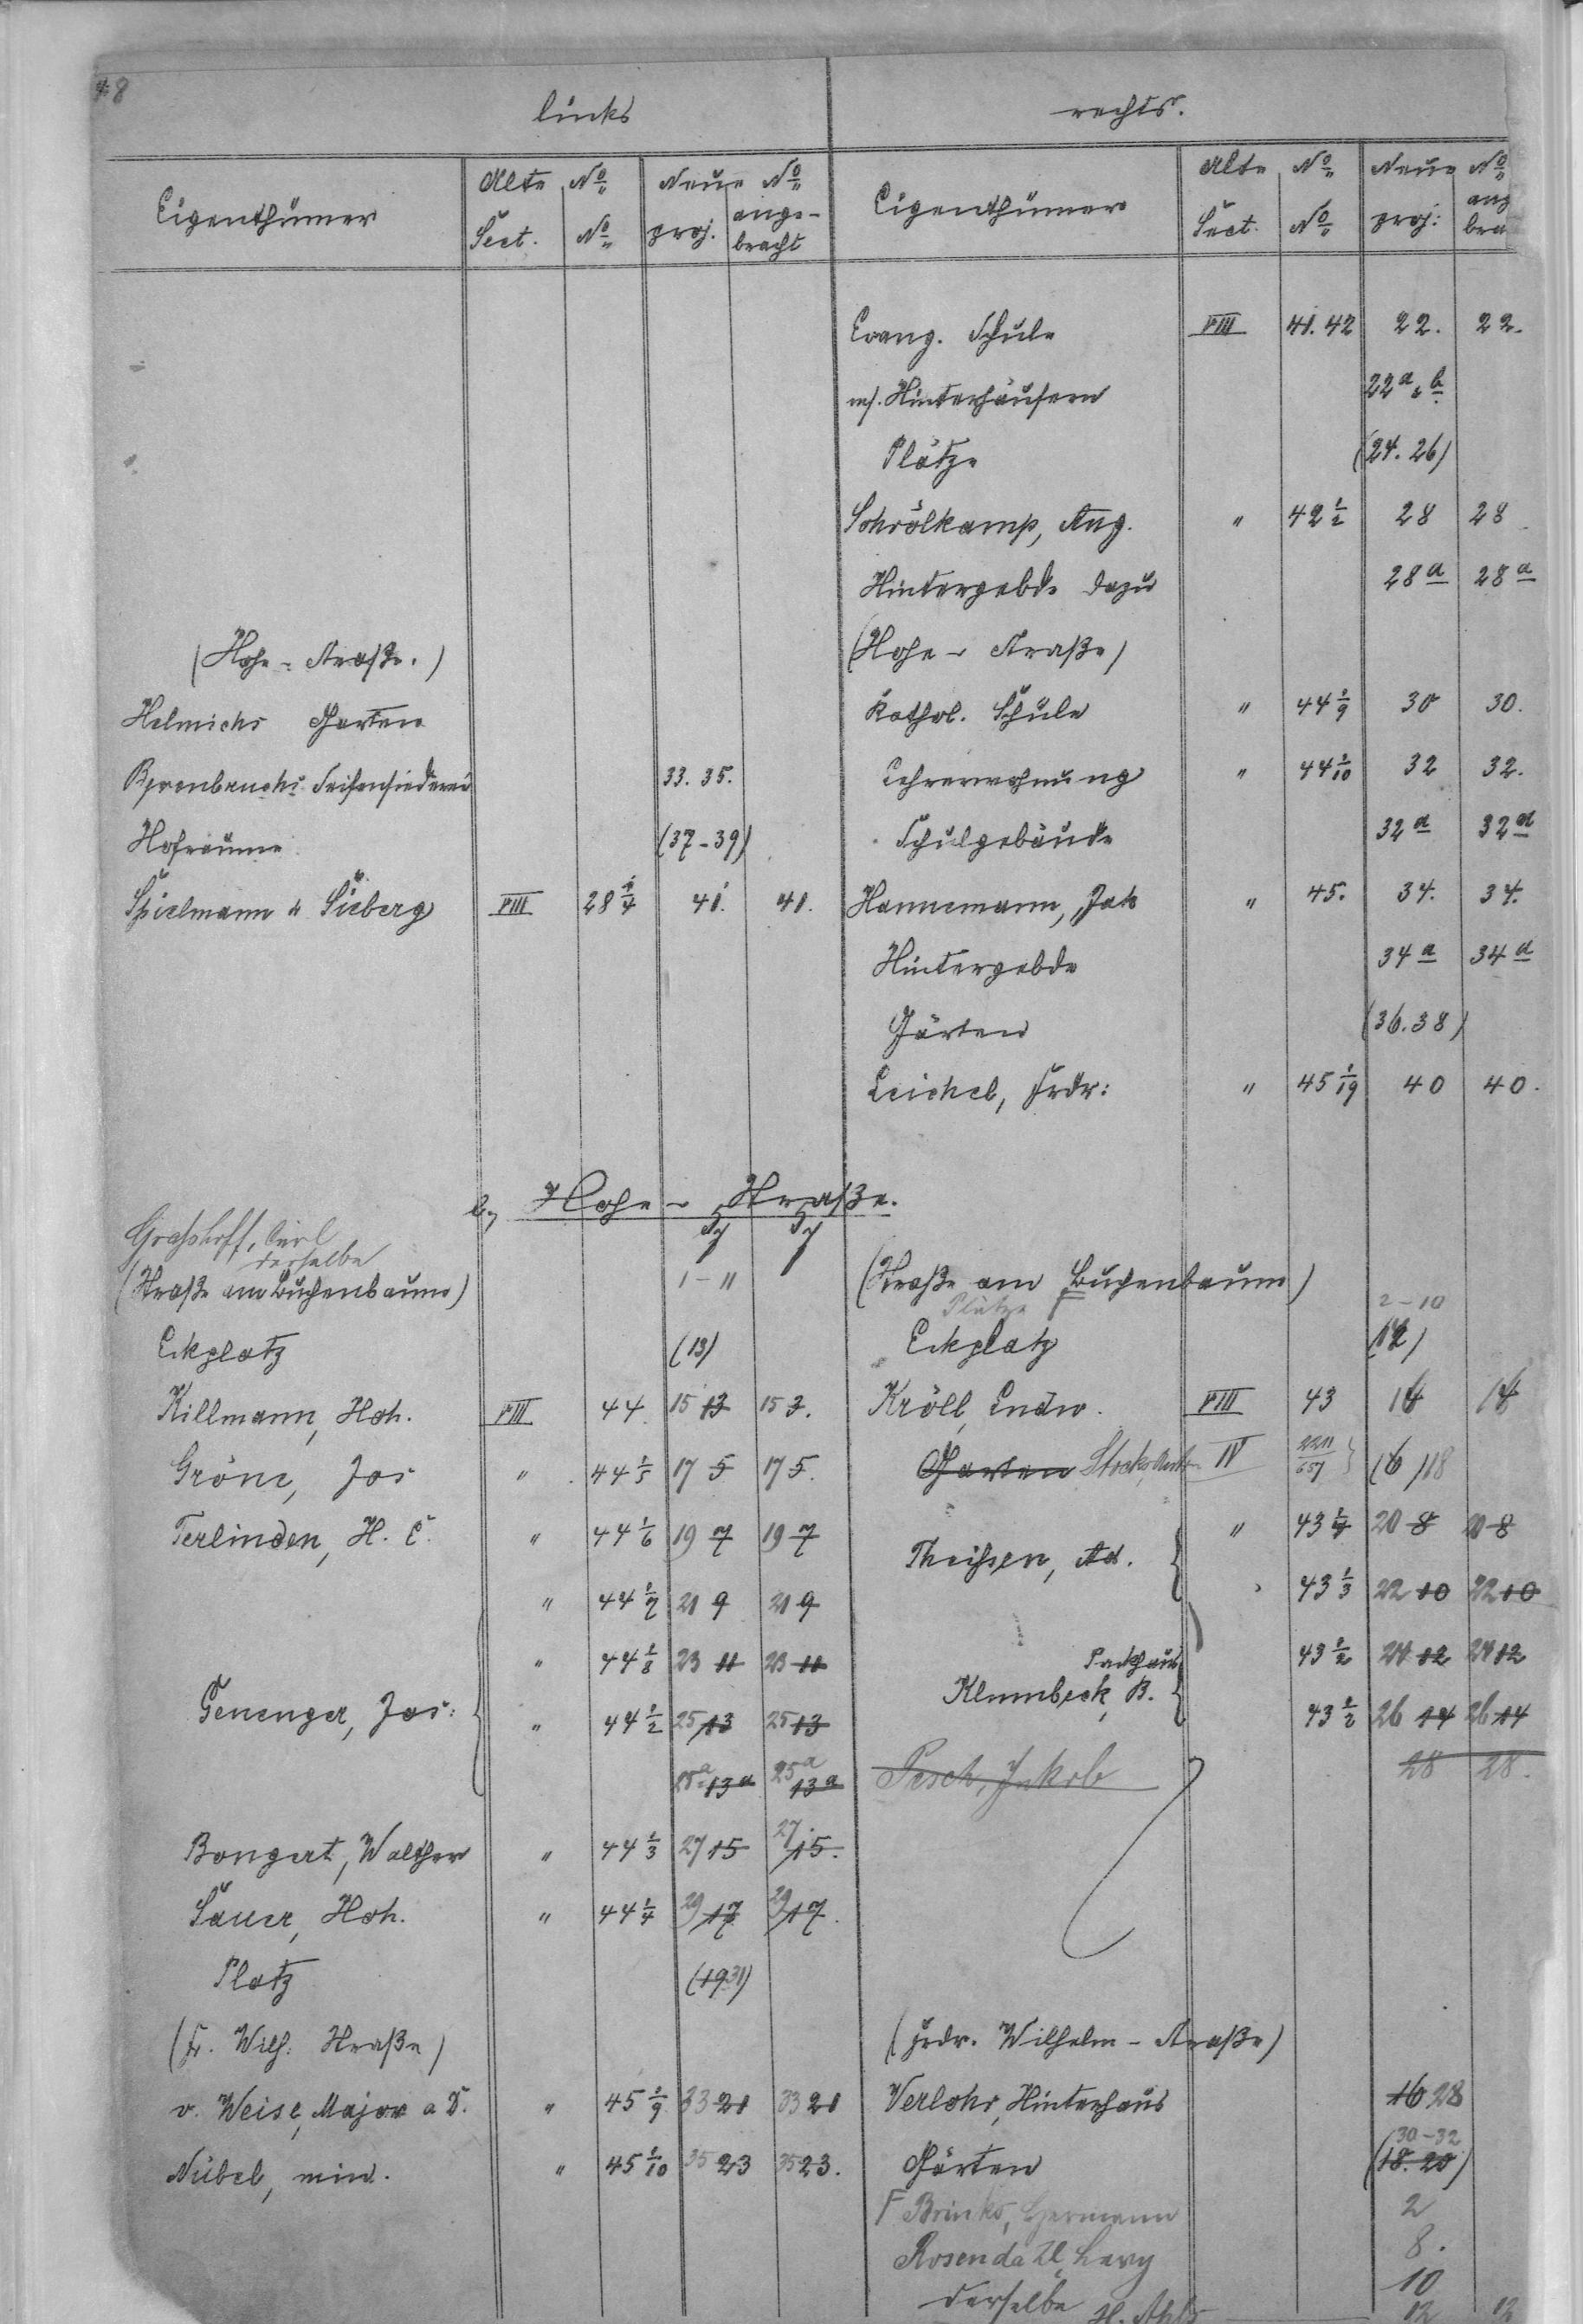 8
links rechts.
Eigenthümer Alte No Neue No Eigenthümer Alte No Neue No
Sect. No proj. ange- Sect. No proj: ang
bracht bra
Evang. Schule VIII 41.42 22. 22.
m. Hinterhäusern 22a. b.
Plätze (24. 26)
Schrölkamp, Aug. " 42 1/2 28 28
Hintergebde dazu 28a 28a
(Hohe-Straße.) (Hohe-Straße)
Helmichs Garten Kathol. Schule " 44 1/9 30 30.
Byrenbruchs Seifensiederei 33. 35. Lehrerwohnung " 44 1/10 32 32.
Hofräume (37-39) Schulgebäude 32a 32a
Spielmann & Sieberg VIII 28 1/4 41. 41. Hannemann, Jak " 45. 34. 34.
Hintergebde 34a 34a
Gärten (36.38)
Leichel, Frdr: " 45 1/19 40 40.
b, Hohe-Straße.
Grashoff, Carl
derselbe
(Straße am Buchenbaum) 1-11 (Straße am Buchenbaum)
Plätze F 2-10
Eckplatz (13) Eckplatz (12)
Killmann, Hch. VIII 44. 15 13 15 3. Kröll, Ludw. VIII 43 14 14
Gröne, Jos " 44 1/5 17 5 17 5. Garten Stocks, IV 2211/657 16 18
Terlinden, H. C. " 44 1/6 19 7 19 7 Theißen, Ad. " 43 1/4 20 8 20 8
" 44 1/7 21 9 21 9 43 1/3 22 10 22 10
" 44 1/8 23 11 23 11 Packhaus 43 1/2 24 12 24 12
Genenger, Jos: " 44 1/2 25 13 25 13 Klumbeck, B. 43 1/2 26 14 26 14
25a 13a 25a 13a Pesch, Jakob 28 28.
Bongert, Walther " 44 1/3 27 15 27 15.
Sauer, Hch. " 44 1/4 29 17 29 17.
Platz (19 31)
(Fr. Wilh. Straße) (Frdr. Wilhelm-Straße)
v. Weise, Major a D. " 45 1/9 33 21 33 21 Verlohr, Hinterhaus 16 28
30-32
Nübel, min. " 45 1/10 35 23 35 23. Gärten (18. 20)
F Brinks, Hermann 2
Rosendahl, Levy 8.
derselbe 10
12 12